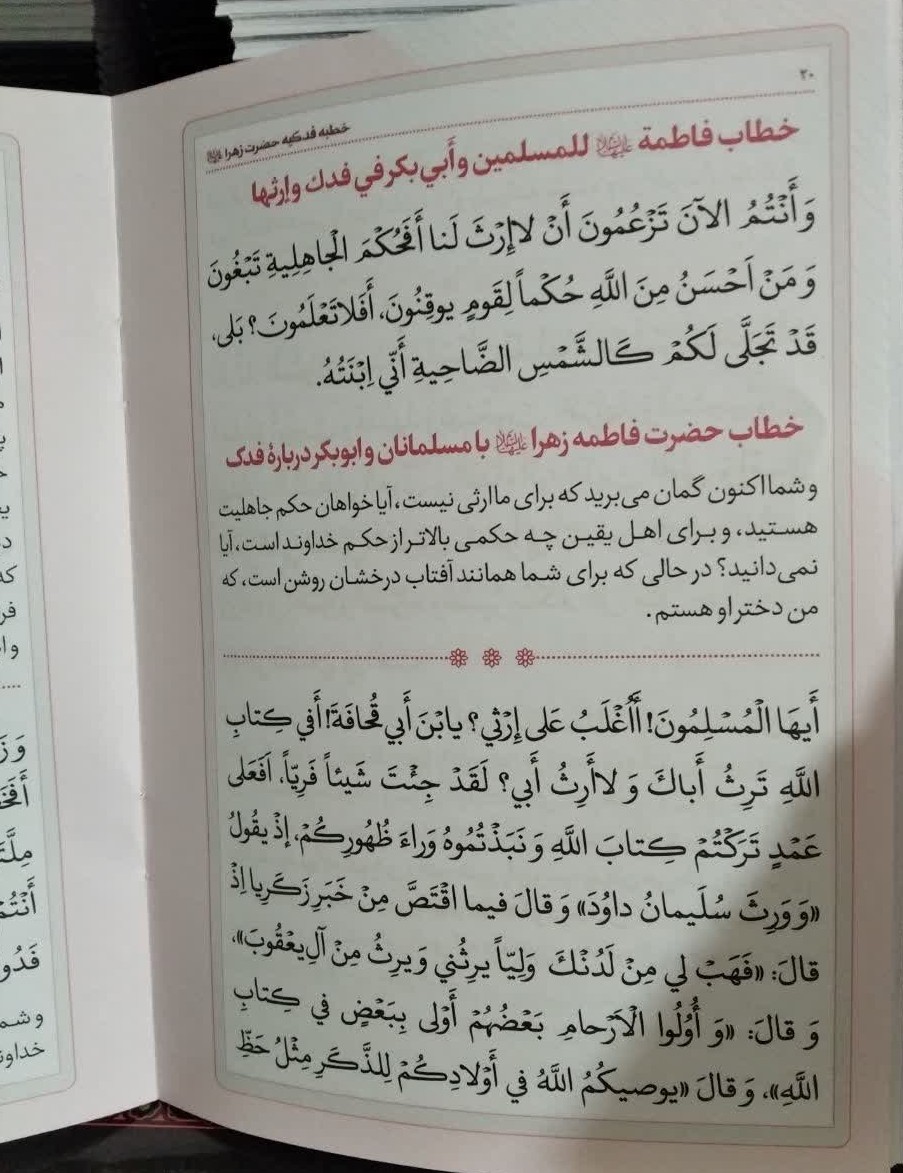 ۲۰
خطبه فدکیه حضرت زهرا
خطاب فاطمة للمسلمين وأبي بكر في فدك وإرثها
وَأَنْتُمُ الآنَ تَزْعُمُونَ أَنْ لاإِرْثَ لَنا أَفَحُكْمَ الْجاهِلِيةِ تَبْغُونَ
وَ مَنْ اَحْسَنُ مِنَ اللَّهِ حُكْماً لِقَومٍ يوقِنُونَ، أَفَلاتَعْلَمُونَ؟ بَلى،
قَدْ تَجَلَّى لَكُمْ كَالشَّمْسِ الضَّاحِيةِ أَنّي اِبْنَتُهُ.
خطاب حضرت فاطمه زهرا با مسلمانان و ابوبکر دربارهٔ فدک
و شما اکنون گمان می‌برید که برای ما ارثی نیست، آیا خواهان حکم جاهلیت
هستید، و برای اهل یقین چه حکمی بالاتر از حکم خداوند است، آیا
نمی‌دانید؟ در حالی که برای شما همانند آفتاب درخشان روشن است، که
من دختر او هستم.
أَيهَا الْمُسْلِمُونَ! أَأُغْلَبُ عَلى إِرْثي؟ يابْنَ أَبي قُحافَةَ! أَفي كِتابِ
اللَّهِ تَرِثُ أَباكَ وَ لاأَرِثُ أَبي؟ لَقَدْ جِئْتَ شَيئاً فَرِيّاً، اَفَعَلى
عَمْدٍ تَرَكْتُمْ كِتابَ اللَّهِ وَ نَبَذْتُمُوهُ وَراءَ ظُهُورِكُمْ، إِذْ يقُولُ
«وَ وَرِثَ سُلَيمانُ داوُدَ» وَ قالَ فيما اقْتَصَّ مِنْ خَبَرِ زَكَرِيا اِذْ
قالَ: «فَهَبْ لي مِنْ لَدُنْكَ وَلِيّاً يرِثُني وَ يرِثُ مِنْ آلِ يعْقُوبَ»،
وَ قالَ: «وَ أُوُلُوا الْاَرْحامِ بَعْضُهُمْ أَوْلى بِبَعْضٍ في كِتابِ
اللَّهِ»، وَ قالَ «يوصيكُمُ اللَّهُ في أَوْلادِكُمْ لِلذَّكَرِ مِثْلُ حَظِّ